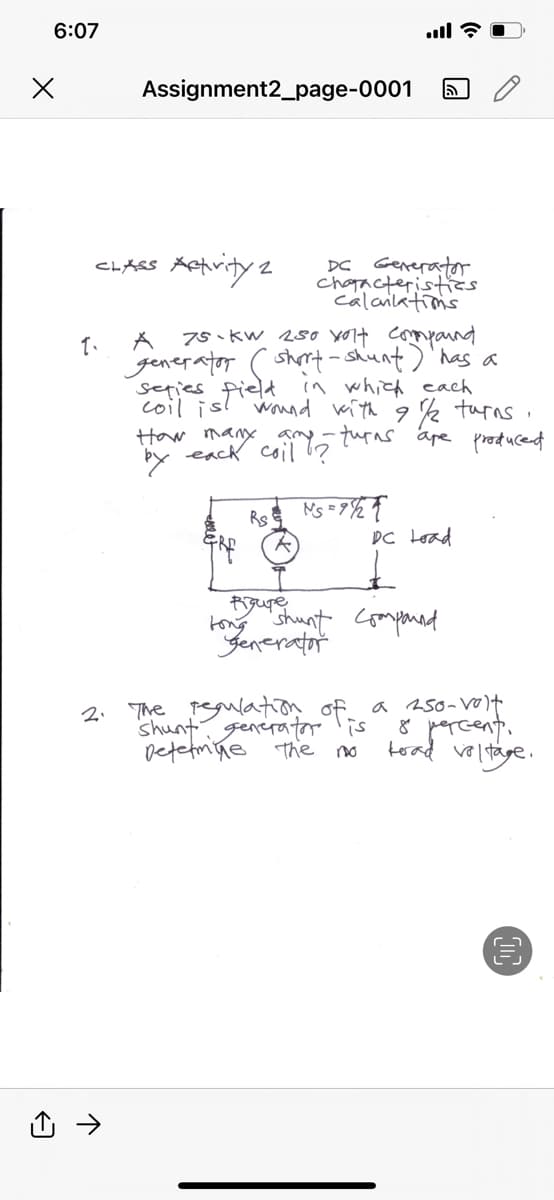 6:07
Assignment2_page-0001
CLASS Activity 2
DC Generator
characteristics
calculations
1. A 75-KW 250 volt compound
generator (short-shunt) has a
series field in which each
coil is wound with 9 1/2 turns.
How many amp-turns are produced
by each coil?
Rs Ns = 9 1/2 T
RF A DC Load
Figure
Long shunt compound
generator
2. The regulation of a 250-volt
shunt generator is 8 percent.
Determine the no load voltage.